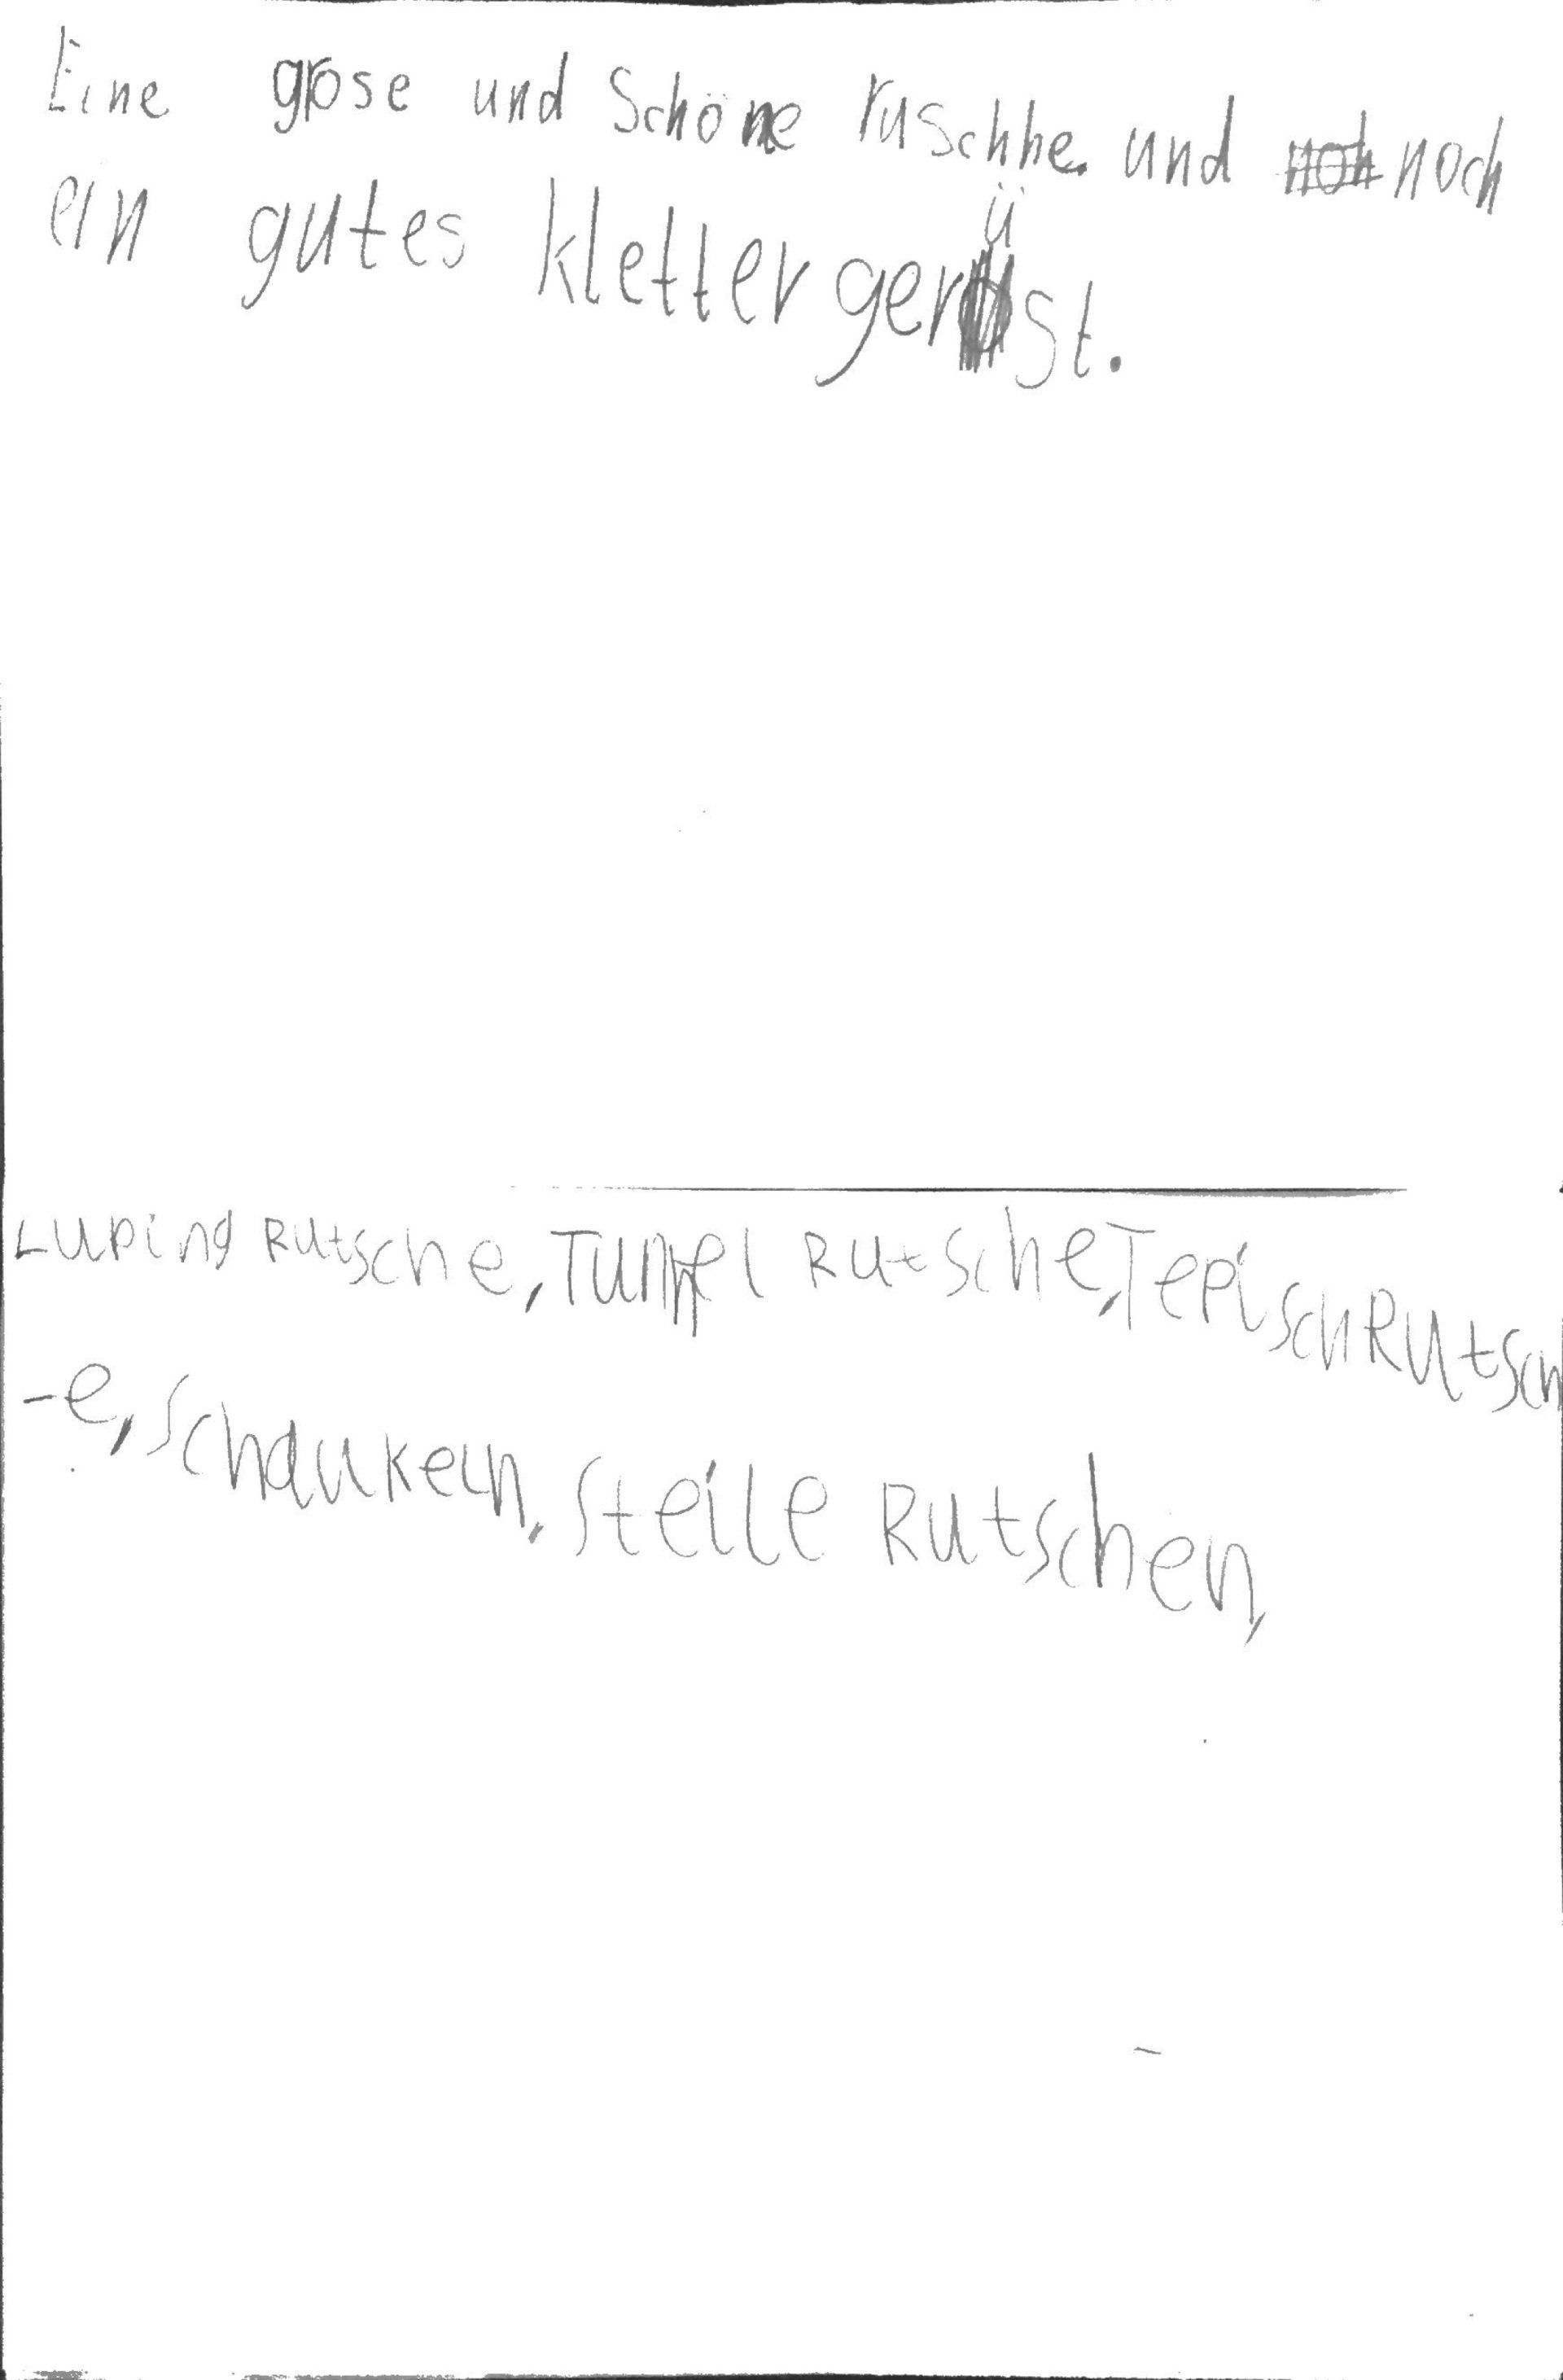 Eine grose und Schöne ruschhe. und noch
ein gutes klettergerüst.
Luping Rutsche, Tunnel Rutsche, TepischRutsch
-e, schaukeln, steile Rutschen,